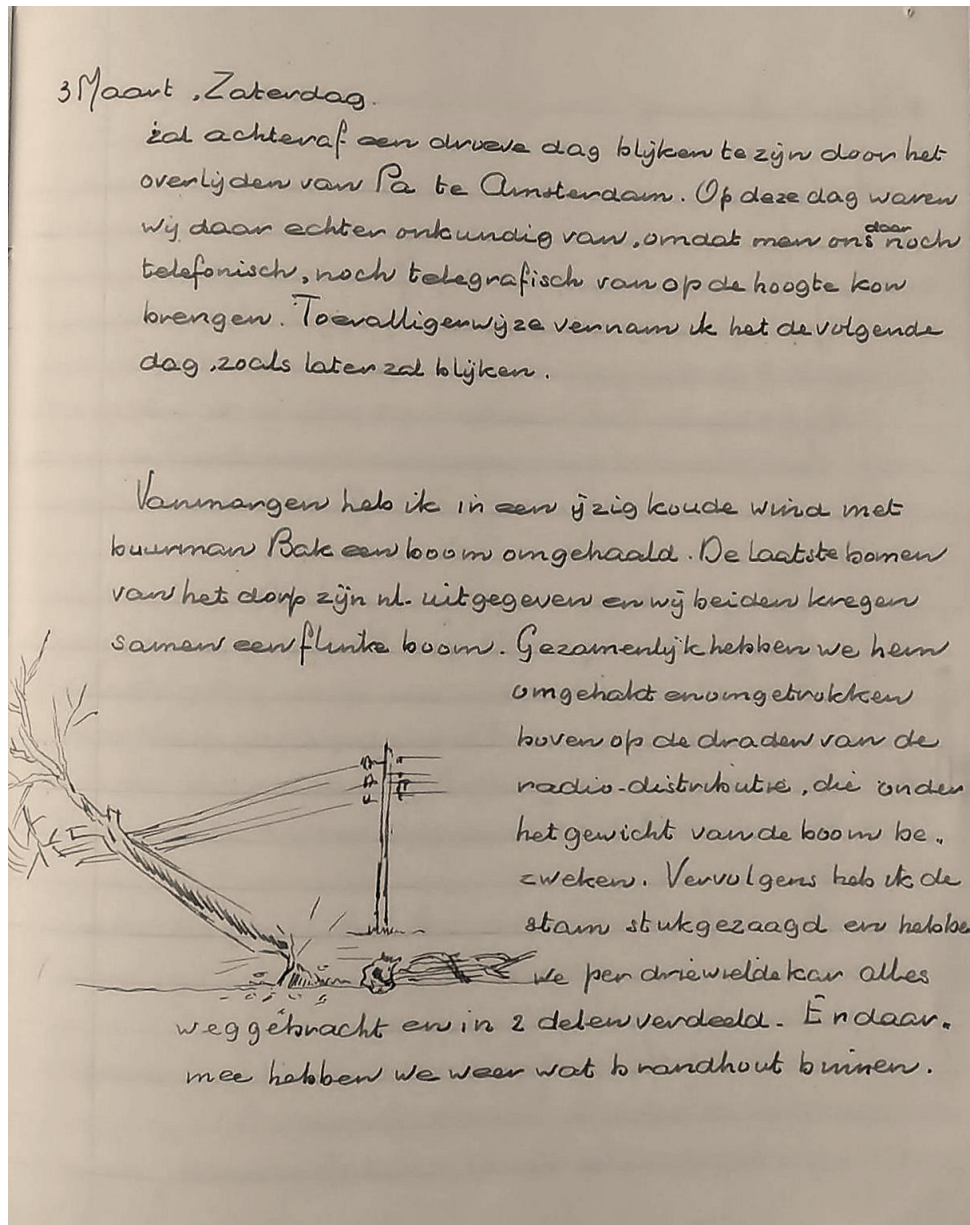 3 Maart, Zaterdag.
zal achteraf een droeve dag blijken te zijn door het
overlijden van Pa te Amsterdam. Op deze dag waren
wij daar echter onkundig van, omdat men ons daar noch
telefonisch, noch telegrafisch van op de hoogte kon
brengen. Toevalligerwijze vernam ik het de volgende
dag, zoals later zal blijken.
Vanmorgen heb ik in een ijzig koude wind met
buurman Bak een boom omgehaald. De laatste bomen
van het dorp zijn nl. uitgegeven en wij beiden kregen
samen een flinke boom. Gezamenlijk hebben we hem
omgehakt en omgetrokken
boven op de draden van de
radio-distributie, die onder
het gewicht van de boom be-
zweken. Vervolgens heb ik de
stam stukgezaagd en hebbe
we per driewielde kar alles
weggebracht en in 2 delen verdeeld. En daar-
mee hebben we weer wat brandhout binnen.